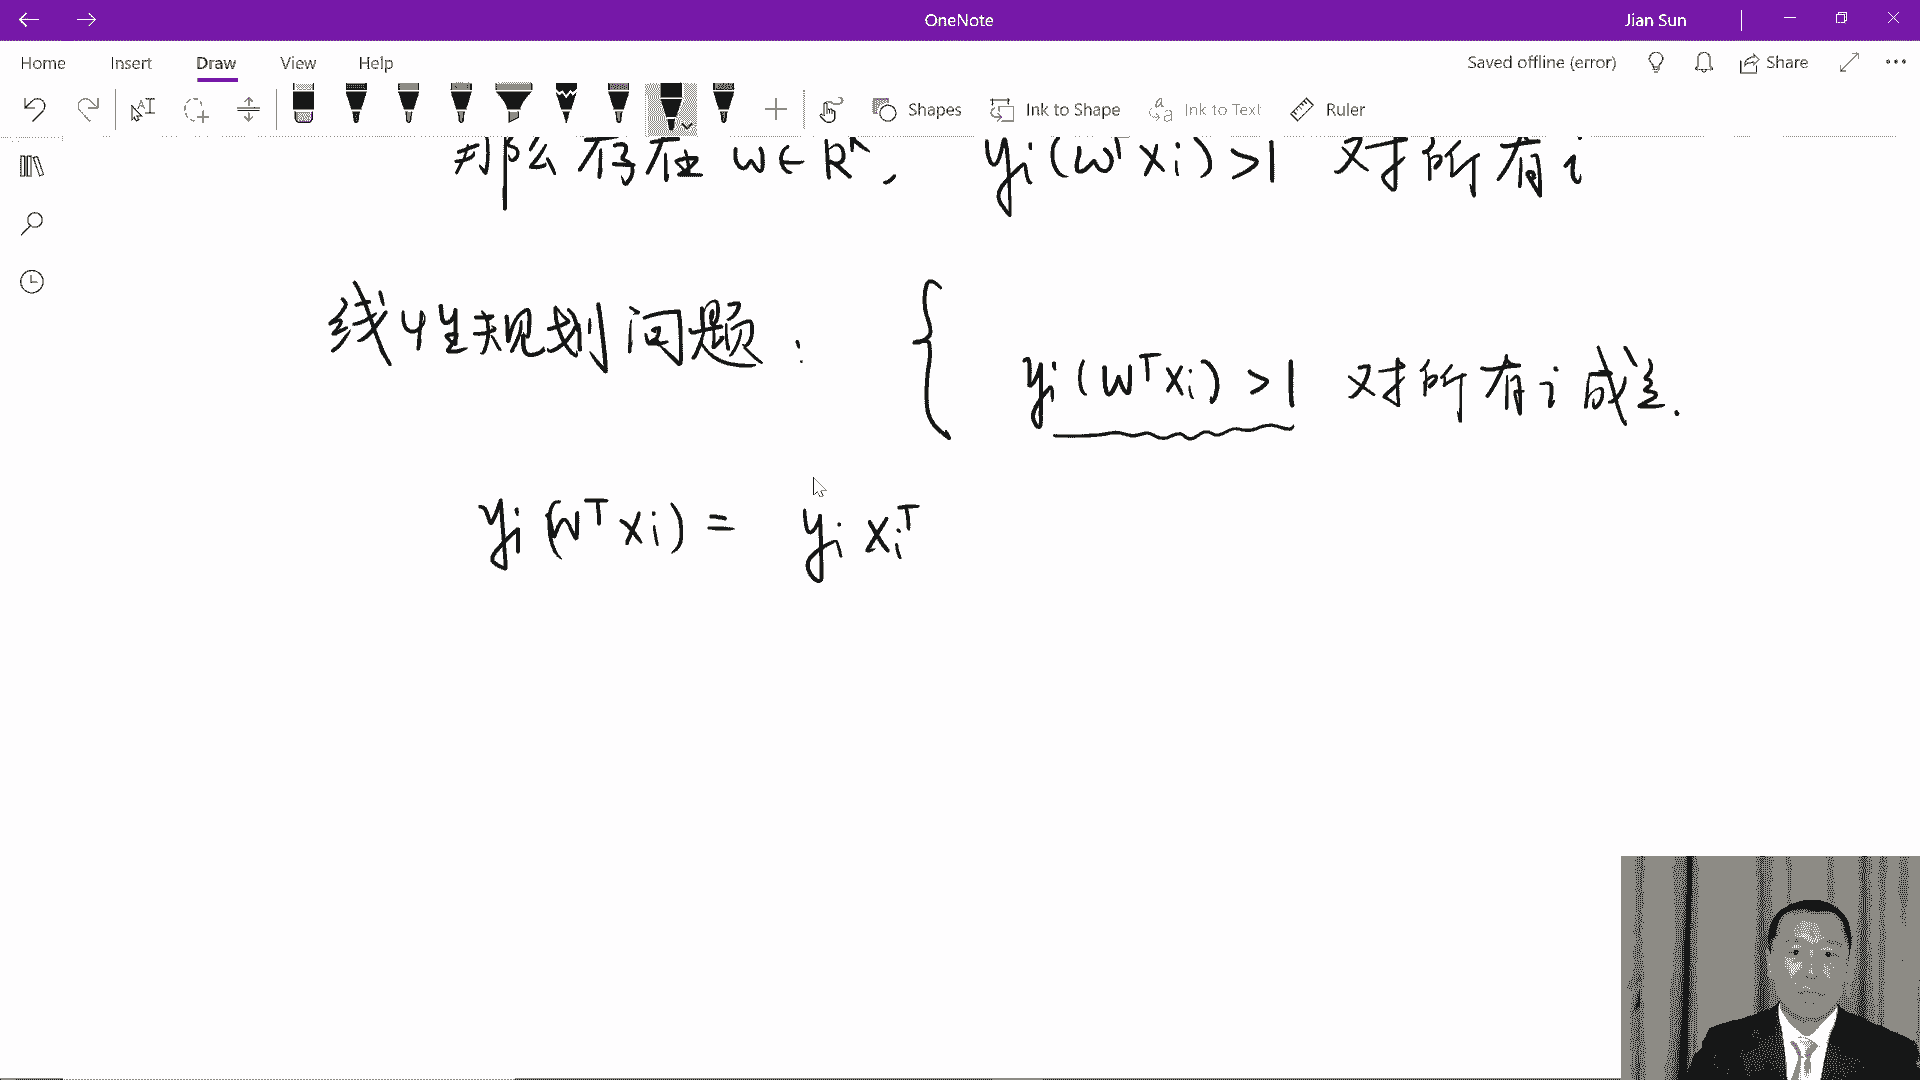 OneNote Jian Sun
Home Insert Draw View Help Saved offline (error) Share
Shapes Ink to Shape Ink to Text Ruler
那么存在 w∈Rⁿ, yᵢ(wᵀxᵢ)>1 对所有i
线性规划问题: { yᵢ(wᵀxᵢ)>1 对所有i成立.
yᵢ(wᵀxᵢ) = yᵢxᵢᵀ